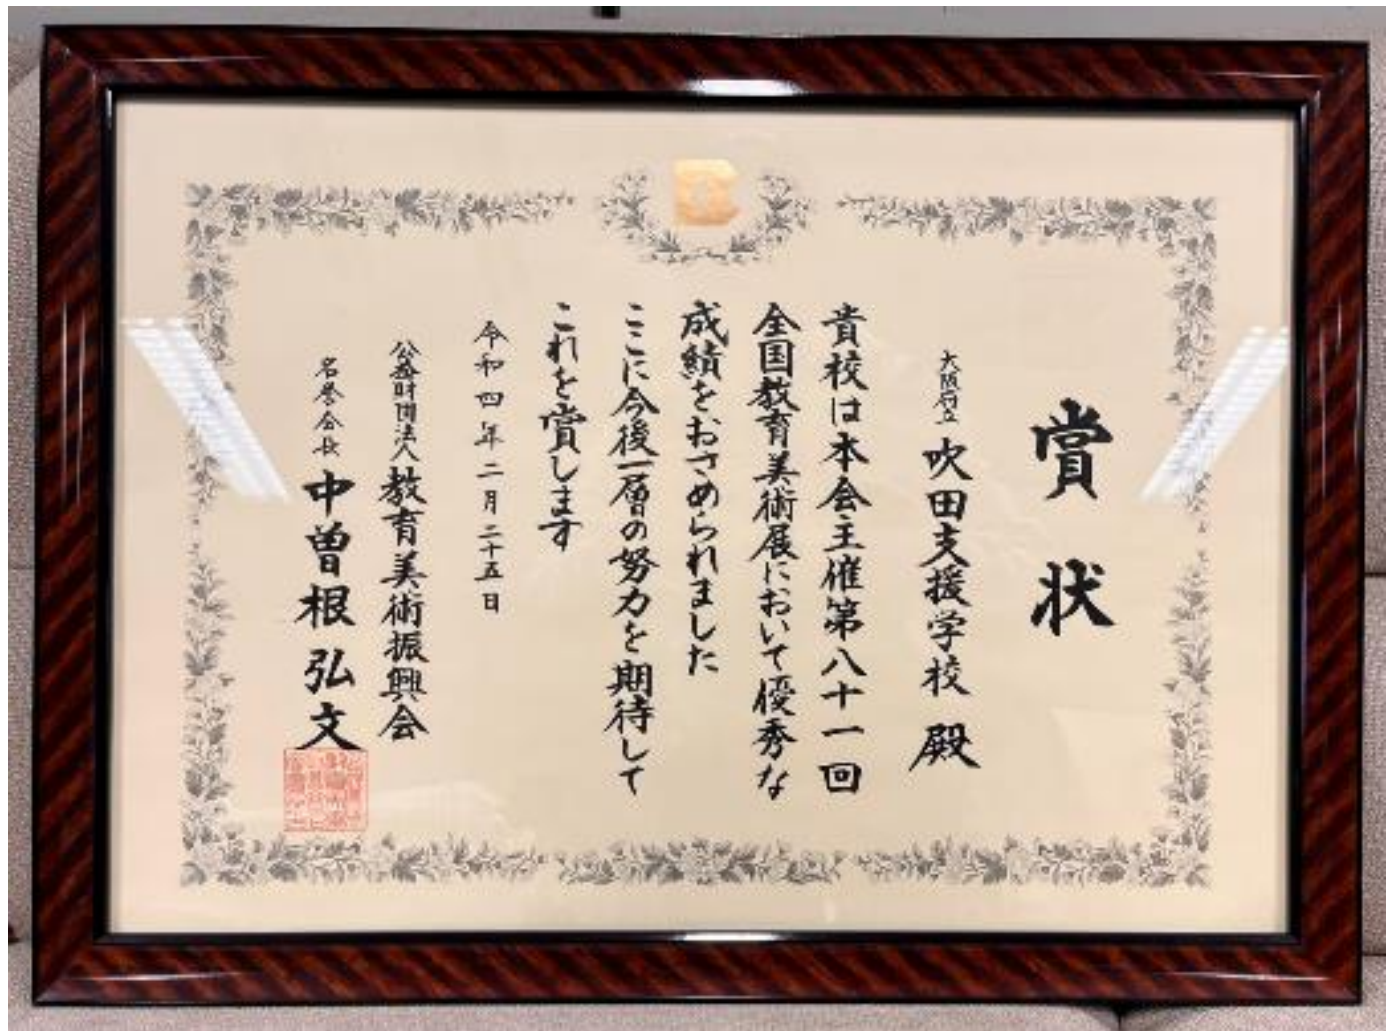 賞状
大阪府立 吹田支援学校 殿
貴校は本会主催第八十一回
全国教育美術展において優秀な
成績をおさめられました
ここに今後一層の努力を期待して
これを賞します
令和四年二月二十五日
公益財団法人 教育美術振興会
名誉会長 中曽根弘文